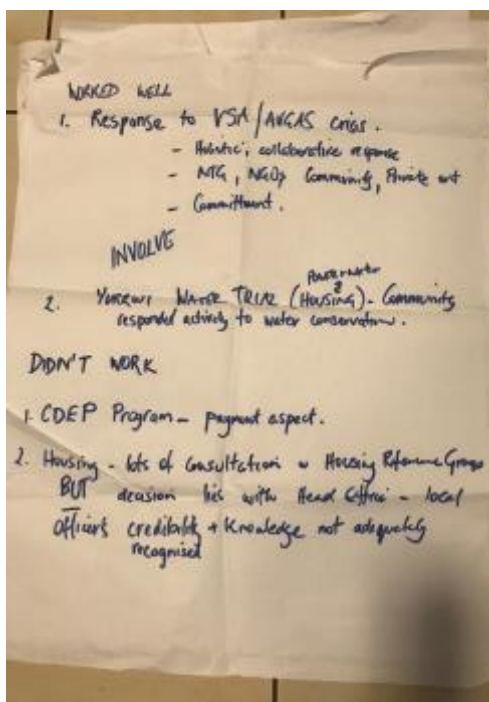 WORKED WELL
1. Response to VSA/AVGAS crisis.
- Holistic, collaborative response
- NTG, NGOs Community, Private ent
- Committment.
INVOLVE
Power+water
2. WATER TRIAL (HOUSING) - Community
responded actively to water conservation.
DIDN'T WORK
1. CDEP Program - payment aspect.
2. Housing - lots of consultation w Housing Reference Groups
BUT decision lies with Head Office - local
Officers credibility + Knowledge not adequately
recognised